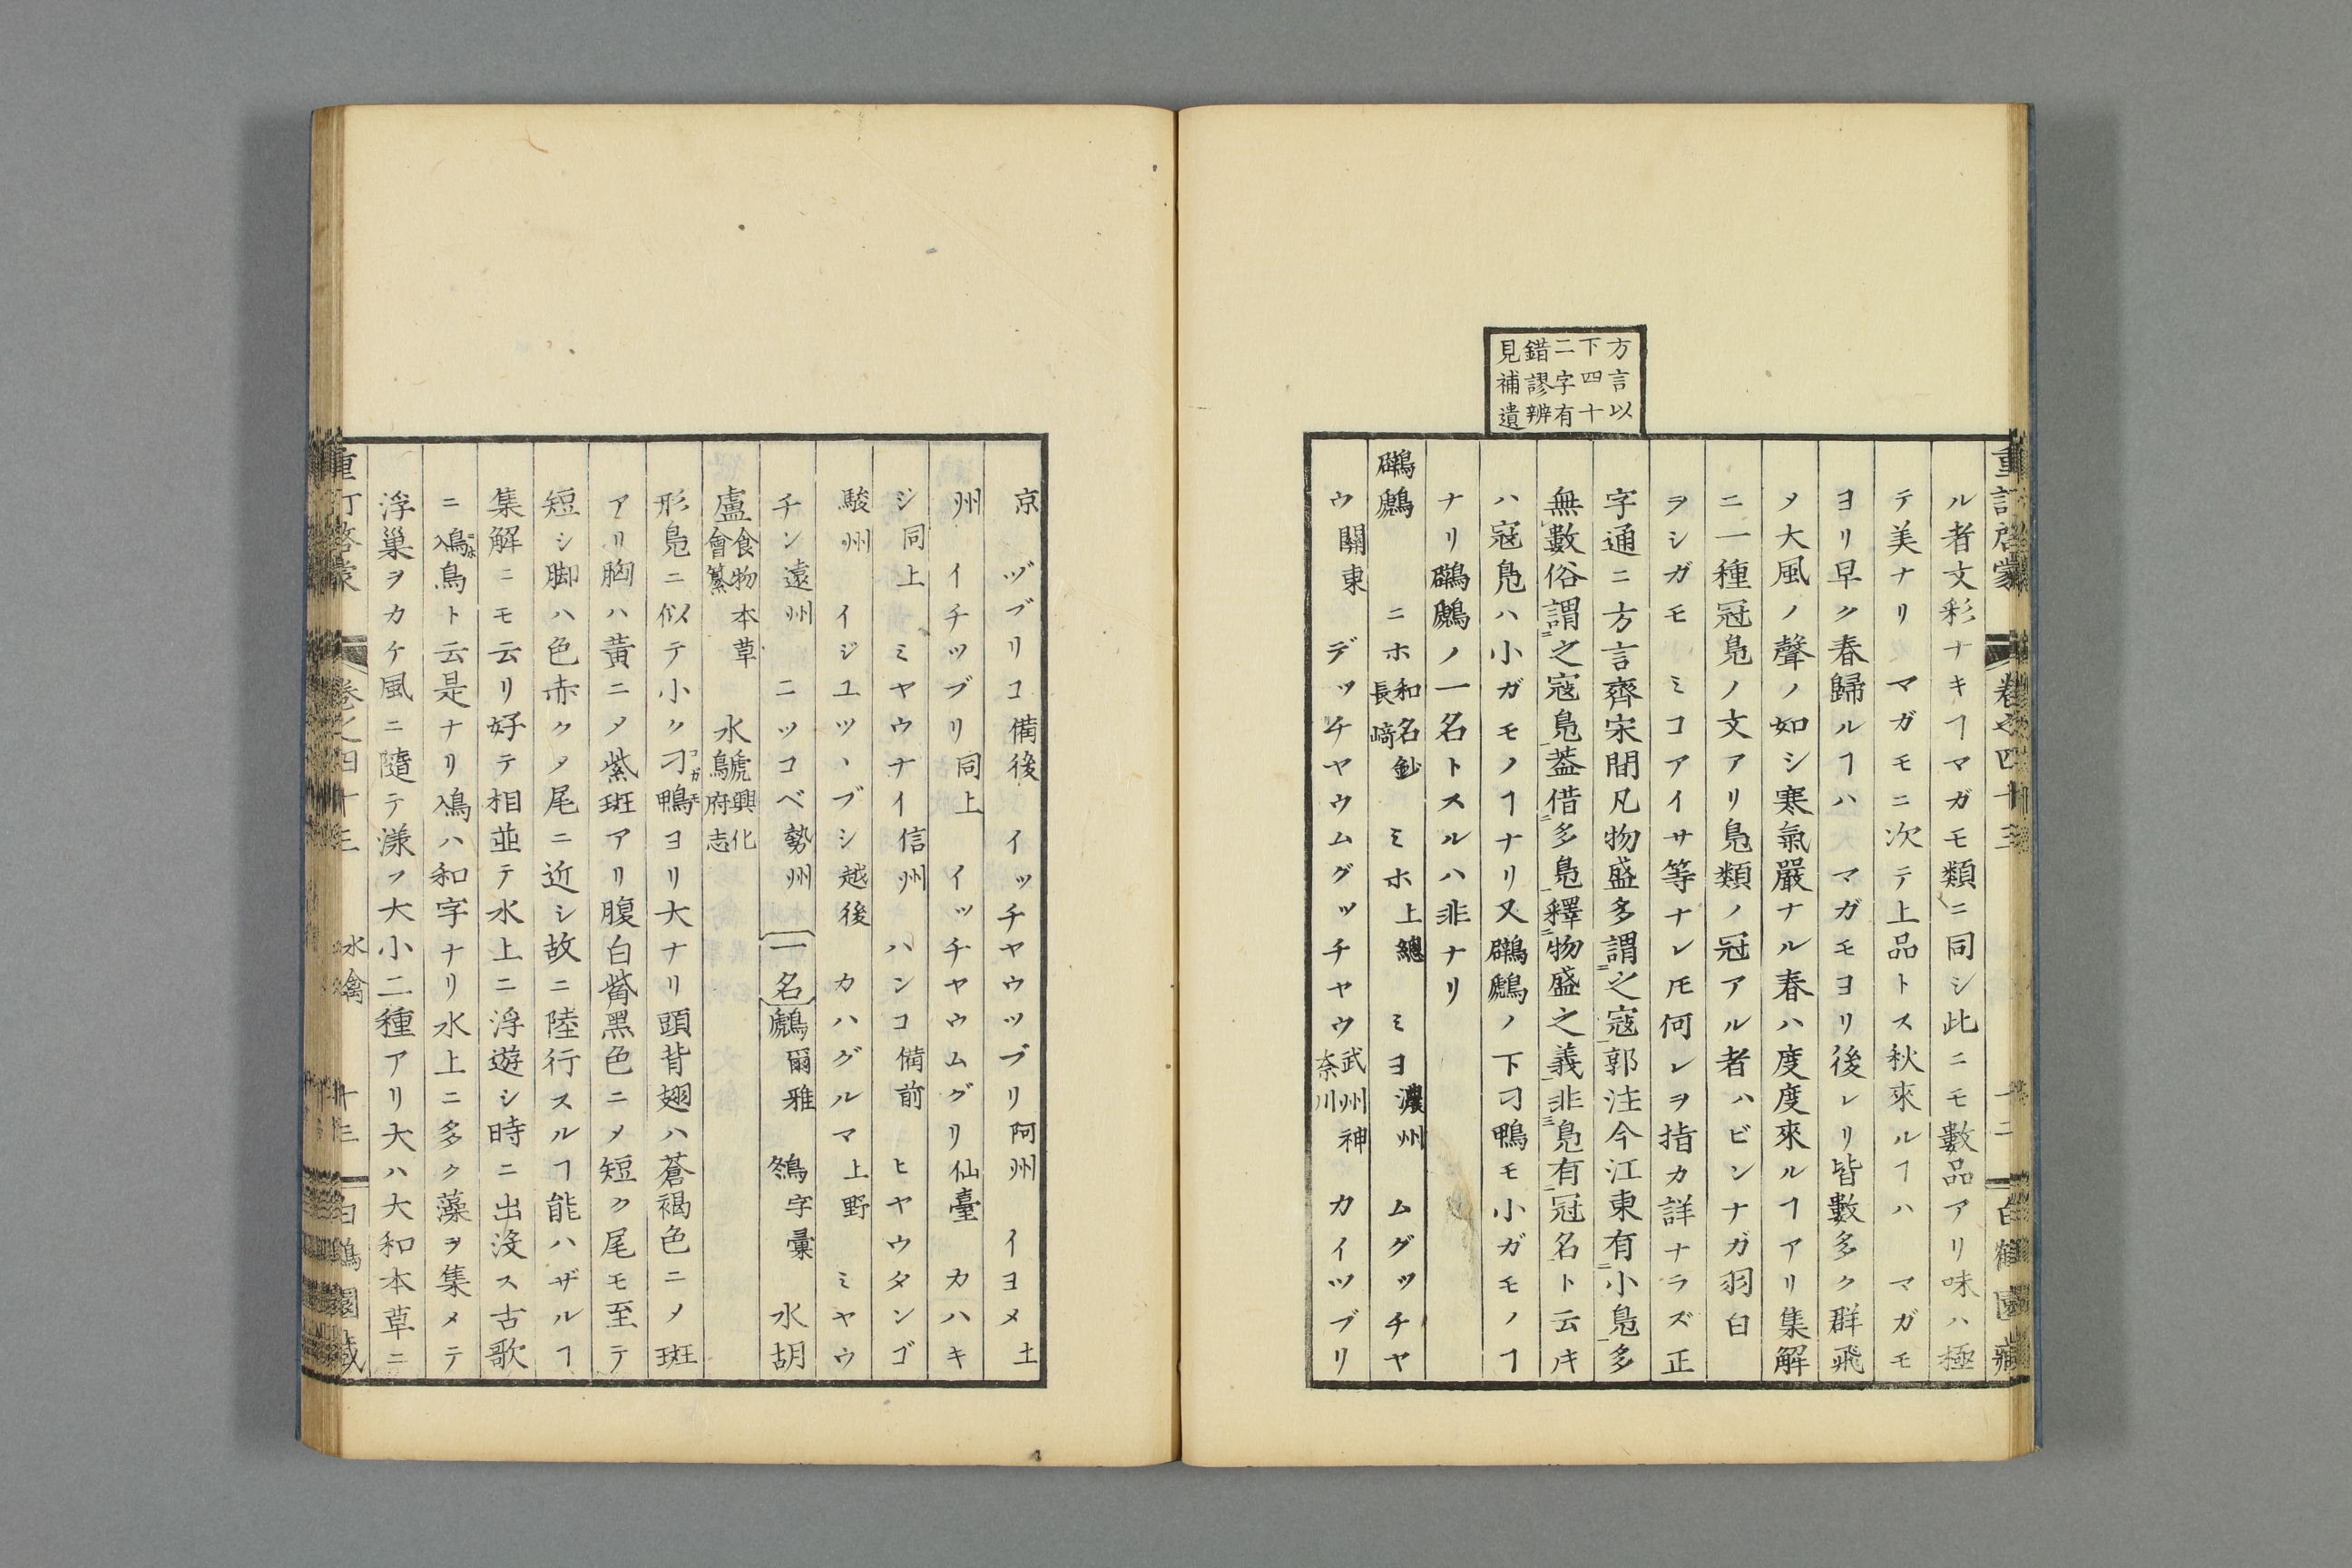 重訂啓蒙 卷之四十三 十二 白鶴園藏
ル者文彩ナキヿマガモ類ニ同シ此ニモ數品アリ味ハ極
テ美ナリ マガモニ次テ上品トス秋來ルヿハ マガモ
ヨリ早ク春歸ルヿハ マガモヨリ後レリ皆數多ク群飛
メ大風ノ聲ノ如シ寒氣嚴ナル春ハ度度來ルヿアリ集解
ニ一種冠鳧ノ文アリ鳧類ノ冠アル者ハビンナガ羽白
ヲシガモ ミコアイサ等ナレ𪜈何レヲ指カ詳ナラズ正
字通ニ方言齊宋間凡物盛多謂之寇郭注今江東有小鳧多
方言以
下四十
二字有
錯謬辨
見補遺
無數俗謂之寇鳧葢借多鳧釋物盛之義非鳧有冠名ト云𪜀
ハ寇鳧ハ小ガモノヿナリ又鸊鷉ノ下刁鴨モ小ガモノヿ
ナリ鸊鷉ノ一名トスルハ非ナリ
鸊鷉 ニホ和名鈔長﨑 ミホ上總 ミヨ濃州 ムグッチヤ
ウ關東 デッチヤウムグッチヤウ武州神奈川 カイツブリ
京 ヅブリコ備後 イッチヤウッブリ阿州 イヨメ土
州 イチッブリ同上 イッチヤウムグリ仙臺 カハキ
シ同上 ミヤウナイ信州 ハンコ備前 ヒヤウタンゴ
駿州 イジユツヽブシ越後 カハグルマ上野 ミヤウ
チン遠州 ニツコベ勢州 一名 鷉爾雅 鴤字彙 水胡
盧食物本草會纂 水鳥虓興化府志
形鳧ニ似テ小ク刁鴨コガモヨリ大ナリ頭背翅ハ蒼褐色ニメ斑
アリ胸ハ黃ニメ紫斑アリ腹白觜黑色ニメ短ク尾モ至テ
短シ脚ハ色赤クメ尾ニ近シ故ニ陸行スルヿ能ハザルヿ
集解ニモ云リ好テ相並テ水上ニ浮遊シ時ニ出沒ス古歌
ニ鳰鳥ト云是ナリ鳰ハ和字ナリ水上ニ多ク藻ヲ集メテ
浮巢ヲカケ風ニ隨テ漾フ大小二種アリ大ハ大和本草ニ
重訂啓蒙 卷之四十三 水禽 十三 白鶴園藏